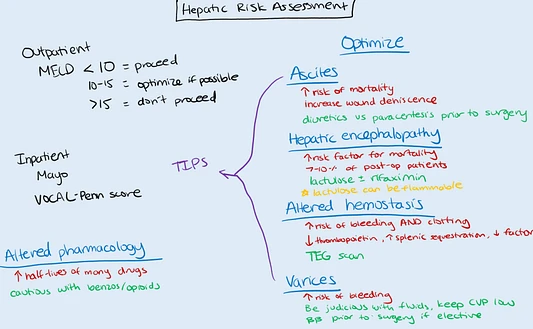 Hepatic Risk Assessment
Outpatient
MELD < 10 = proceed
10-15 = optimize if possible
>15 = don't proceed
Inpatient
Mayo
VOCAL-Penn score
Altered pharmacology
↑ half-lives of many drugs
cautious with benzos/opioids
TIPS
Optimize
Ascites
↑ risk of mortality
increase wound dehiscence
diuretics vs paracentesis prior to surgery
Hepatic encephalopathy
↑ risk factor for mortality
>10% of post-op patients
lactulose ± rifaximin
* lactulose can be flammable
Altered hemostasis
↑ risk of bleeding AND clotting
↓ thrombopoietin, ↑ splenic sequestration, ↓ factor
TEG scan
Varices
↑ risk of bleeding
Be judicious with fluids, keep CVP low
BB prior to surgery if elective